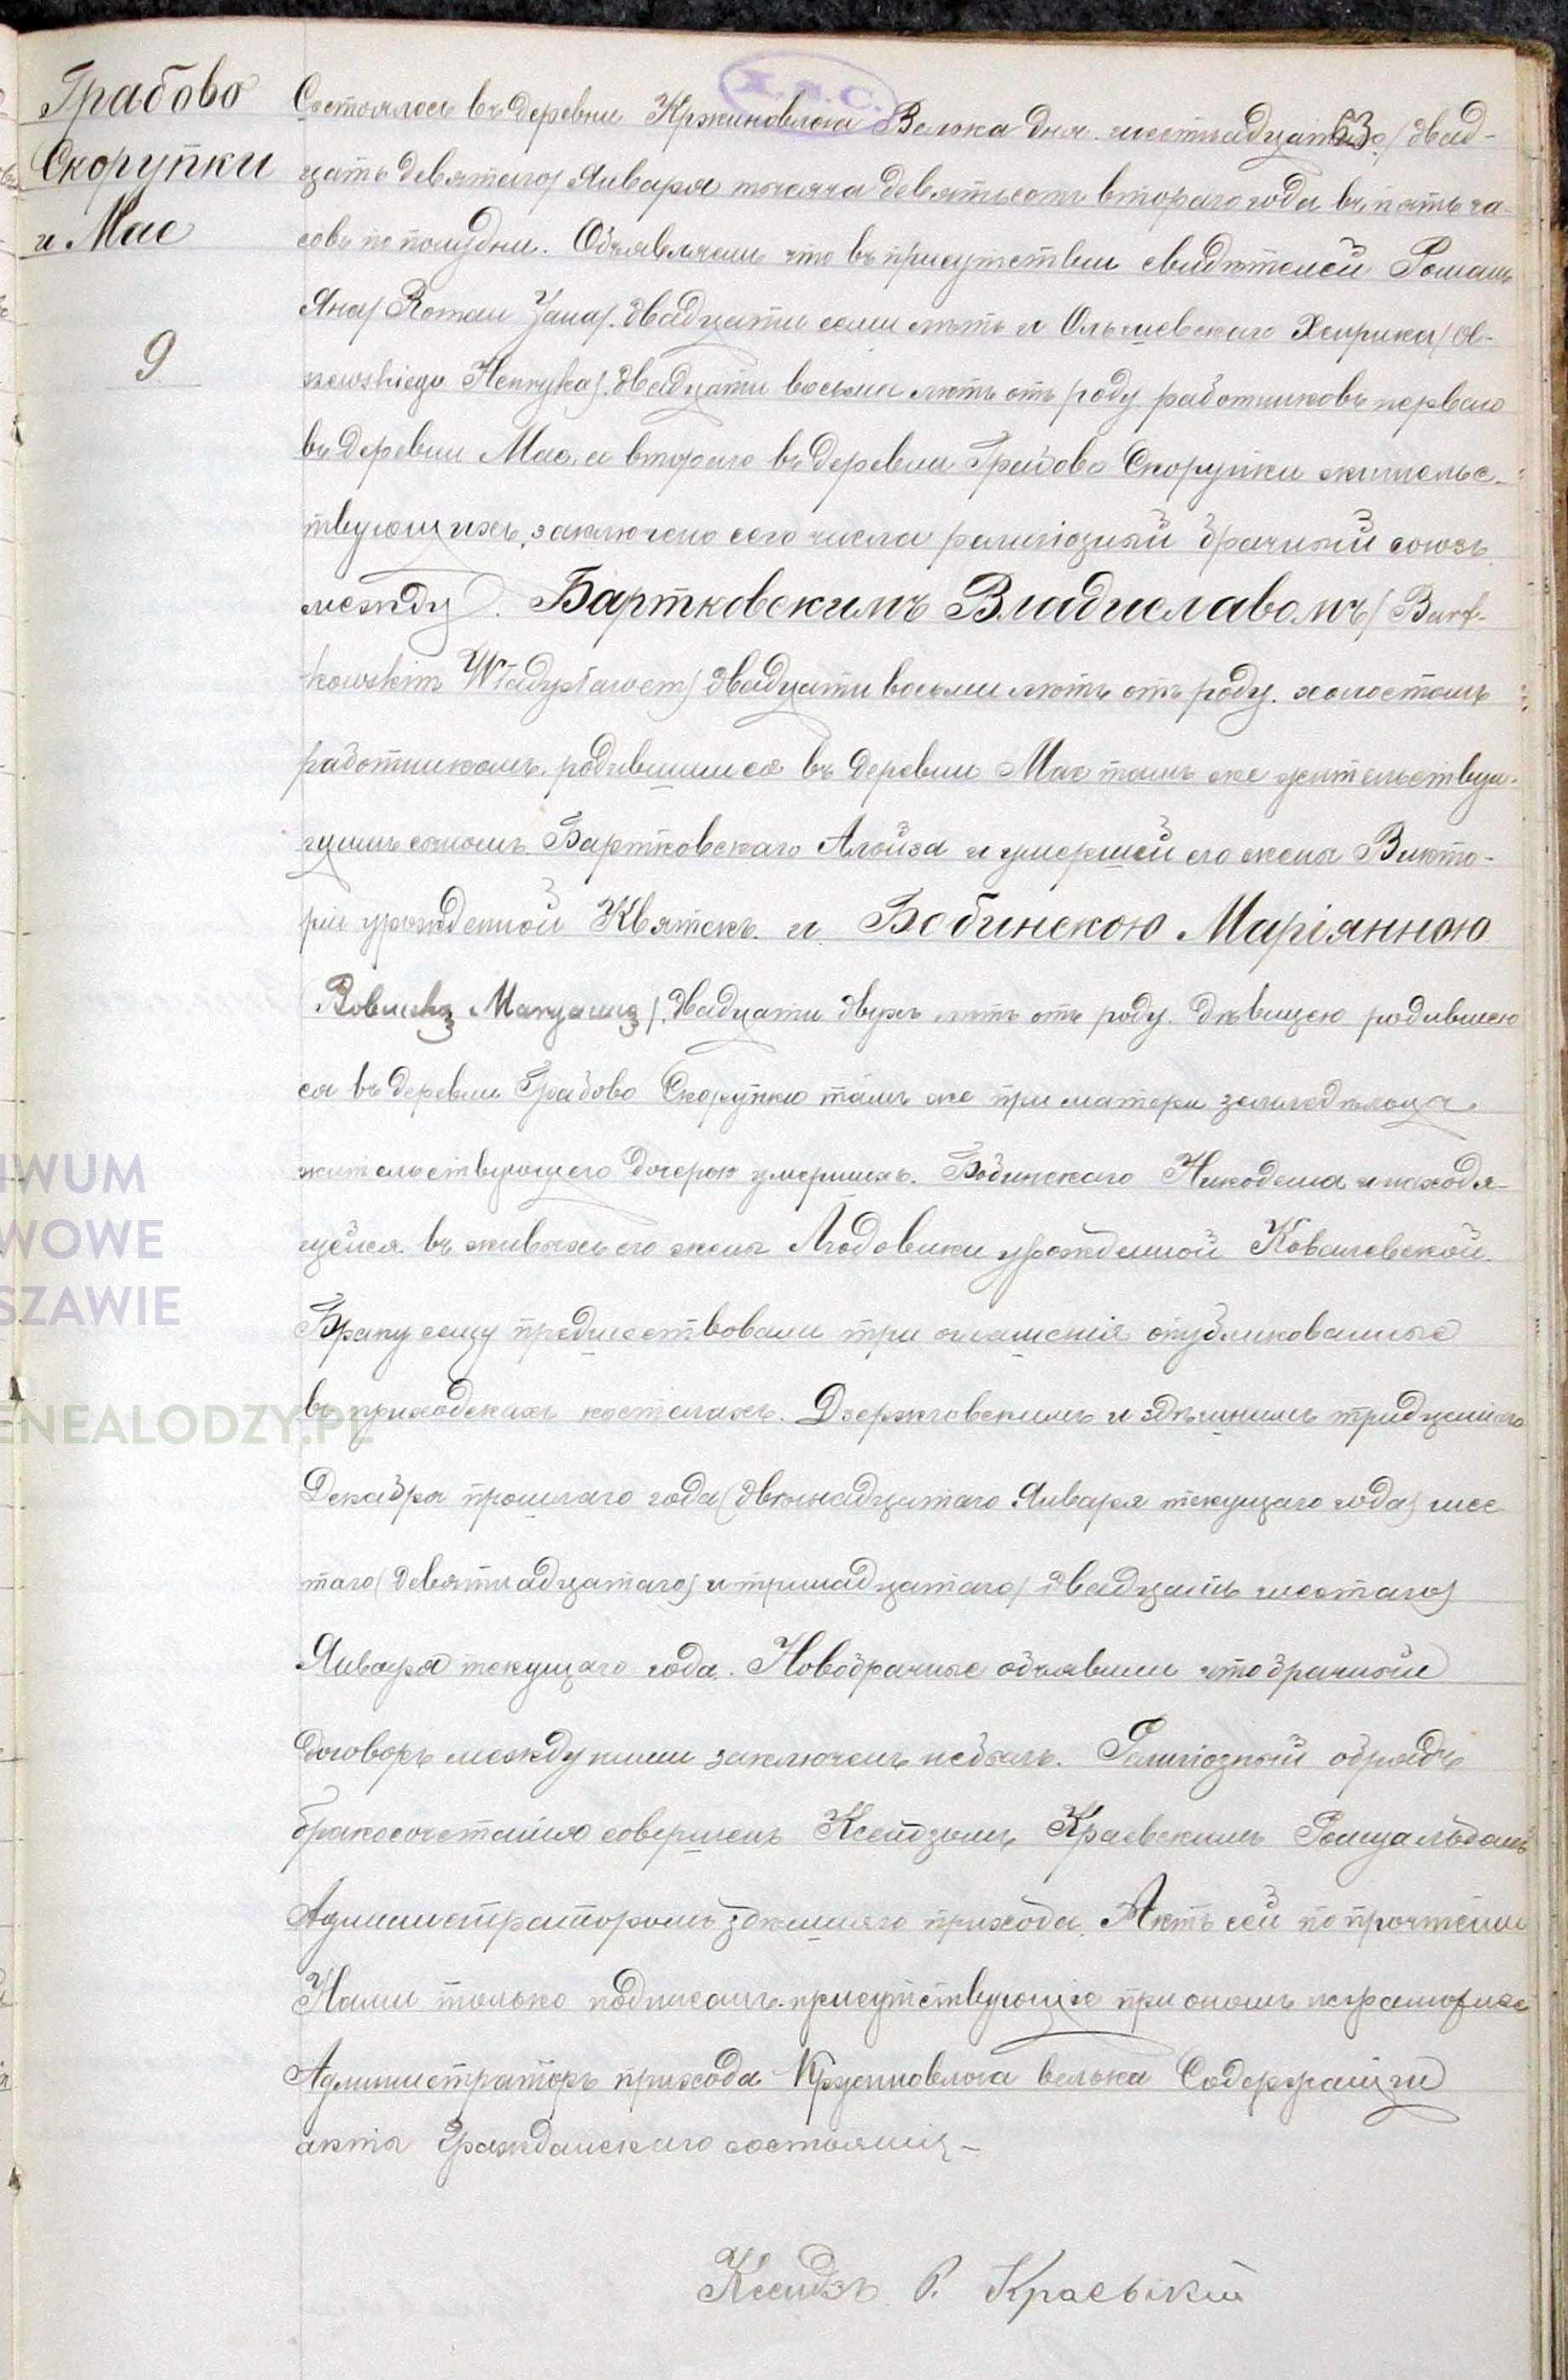 Грабово
Скорупки
и Мас
9
53
Состоялось въ деревни Кржиновлога Велька дня шестнадцатаго/двад-
цать девятаго/ Января тысяча девятьсотъ втораго года въ пять ча-
совъ по полудни. Объявляемъ что въ присутствіи свидѣтелей Романъ
Яна/Roman Jana/. двадцати семи лѣтъ и Ольшевскаго Хенрика/Ol-
szewskiego Henryka/. двадцати восьми лѣтъ отъ роду работниковъ перваго
въ деревни Мас, а втораго въ деревни Грабово Скорупки жительс-
твующихъ, заключено сего числа религіозный брачный союзъ
между. Бартковскимъ Владиславомъ/Bart-
kowskim Władysławem/ двадцати восьми лѣтъ отъ роду. холостомъ
работникомъ, родившимся въ деревни Мас тамъ же жительствую-
щимъ сыномъ Бартковскаго Алойза и умершей его жены Викто-
ріи урожденной Квятекъ. и Бобинскою Маріянною
двадцати двухъ лѣтъ отъ роду. дѣвицею родившею
ся въ деревни Грабово Скорупки тамъ же при матери земледѣльца
жительствующего дочерью умершихъ. Бобинскаго Никодема и находя-
щейся въ живыхъ его жены Людовики урожденной Ковалевской.
Браку сему предшествовали три оглашенія опубликованные
въ приходскихъ костелахъ. Дзержговскимъ и здѣшнимъ тридцатого
Декабря прошлаго года/двѣнадцатаго Января текущаго года/ шес
таго/девятнадцатаго/ и тринадцатаго/двадцать шестаго/
Января текущаго года. Новобрачные объявили что брачный
договоръ между ними заключенъ небылъ. Религіозный обрядъ
бракосочетанія совершенъ Ксендзомъ Краевскимъ Ромуальдомъ
Администраторомъ здѣшняго прихода. Актъ сей по прочтеніи
Нами только подписанъ. присутствующіе при ономъ неграмотные
Администраторъ прихода Кржиновлога велька Содержащій
акты Гражданскаго состоянія-
Ксендзъ Р. Краевскій
IWUM
WOWE
SZAWIE
ENEALODZY.PL